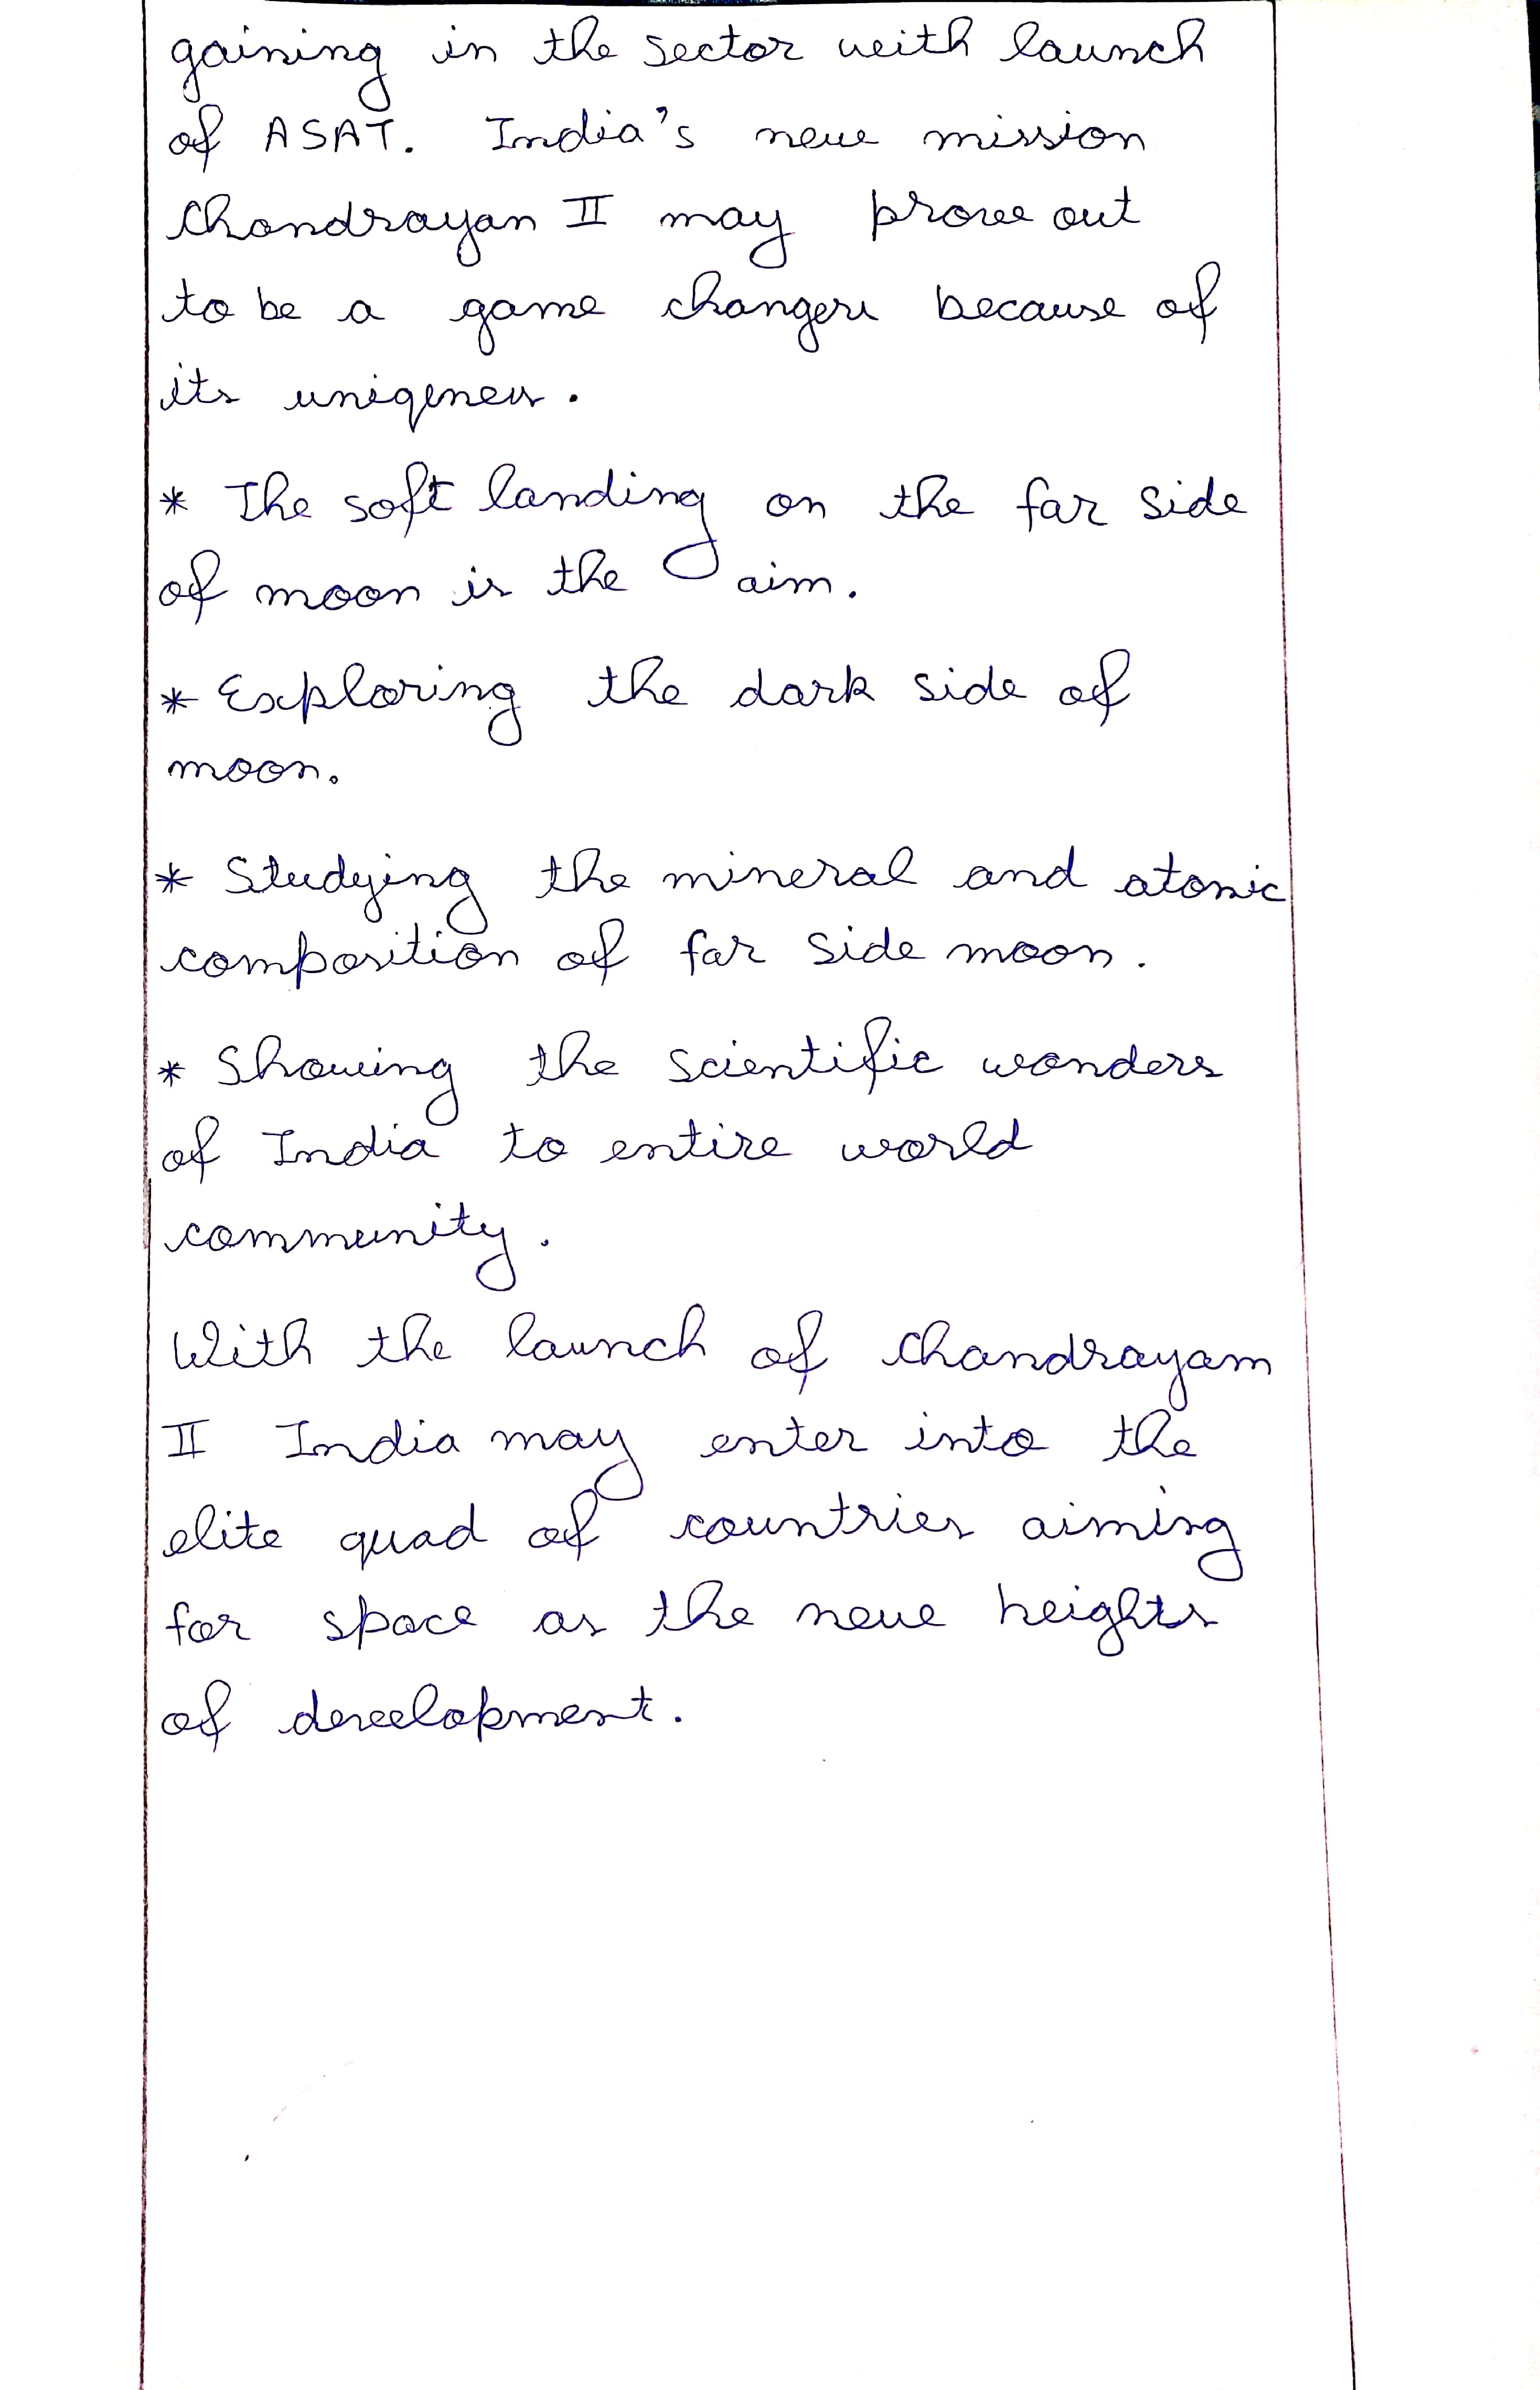 gaining in the sector with launch
of ASAT. India's new mission
Chandrayan II may prove out
to be a game changer because of
its uniqeness.
* The soft landing on the far side
of moon is the aim.
* Exploring the dark side of
moon.
* Studying the mineral and atomic
composition of far side moon.
* Showing the scientific wonders
of India to entire world
community.
With the launch of Chandrayam
II India may enter into the
elite quad of countries aiming
for space as the new heights
of development.